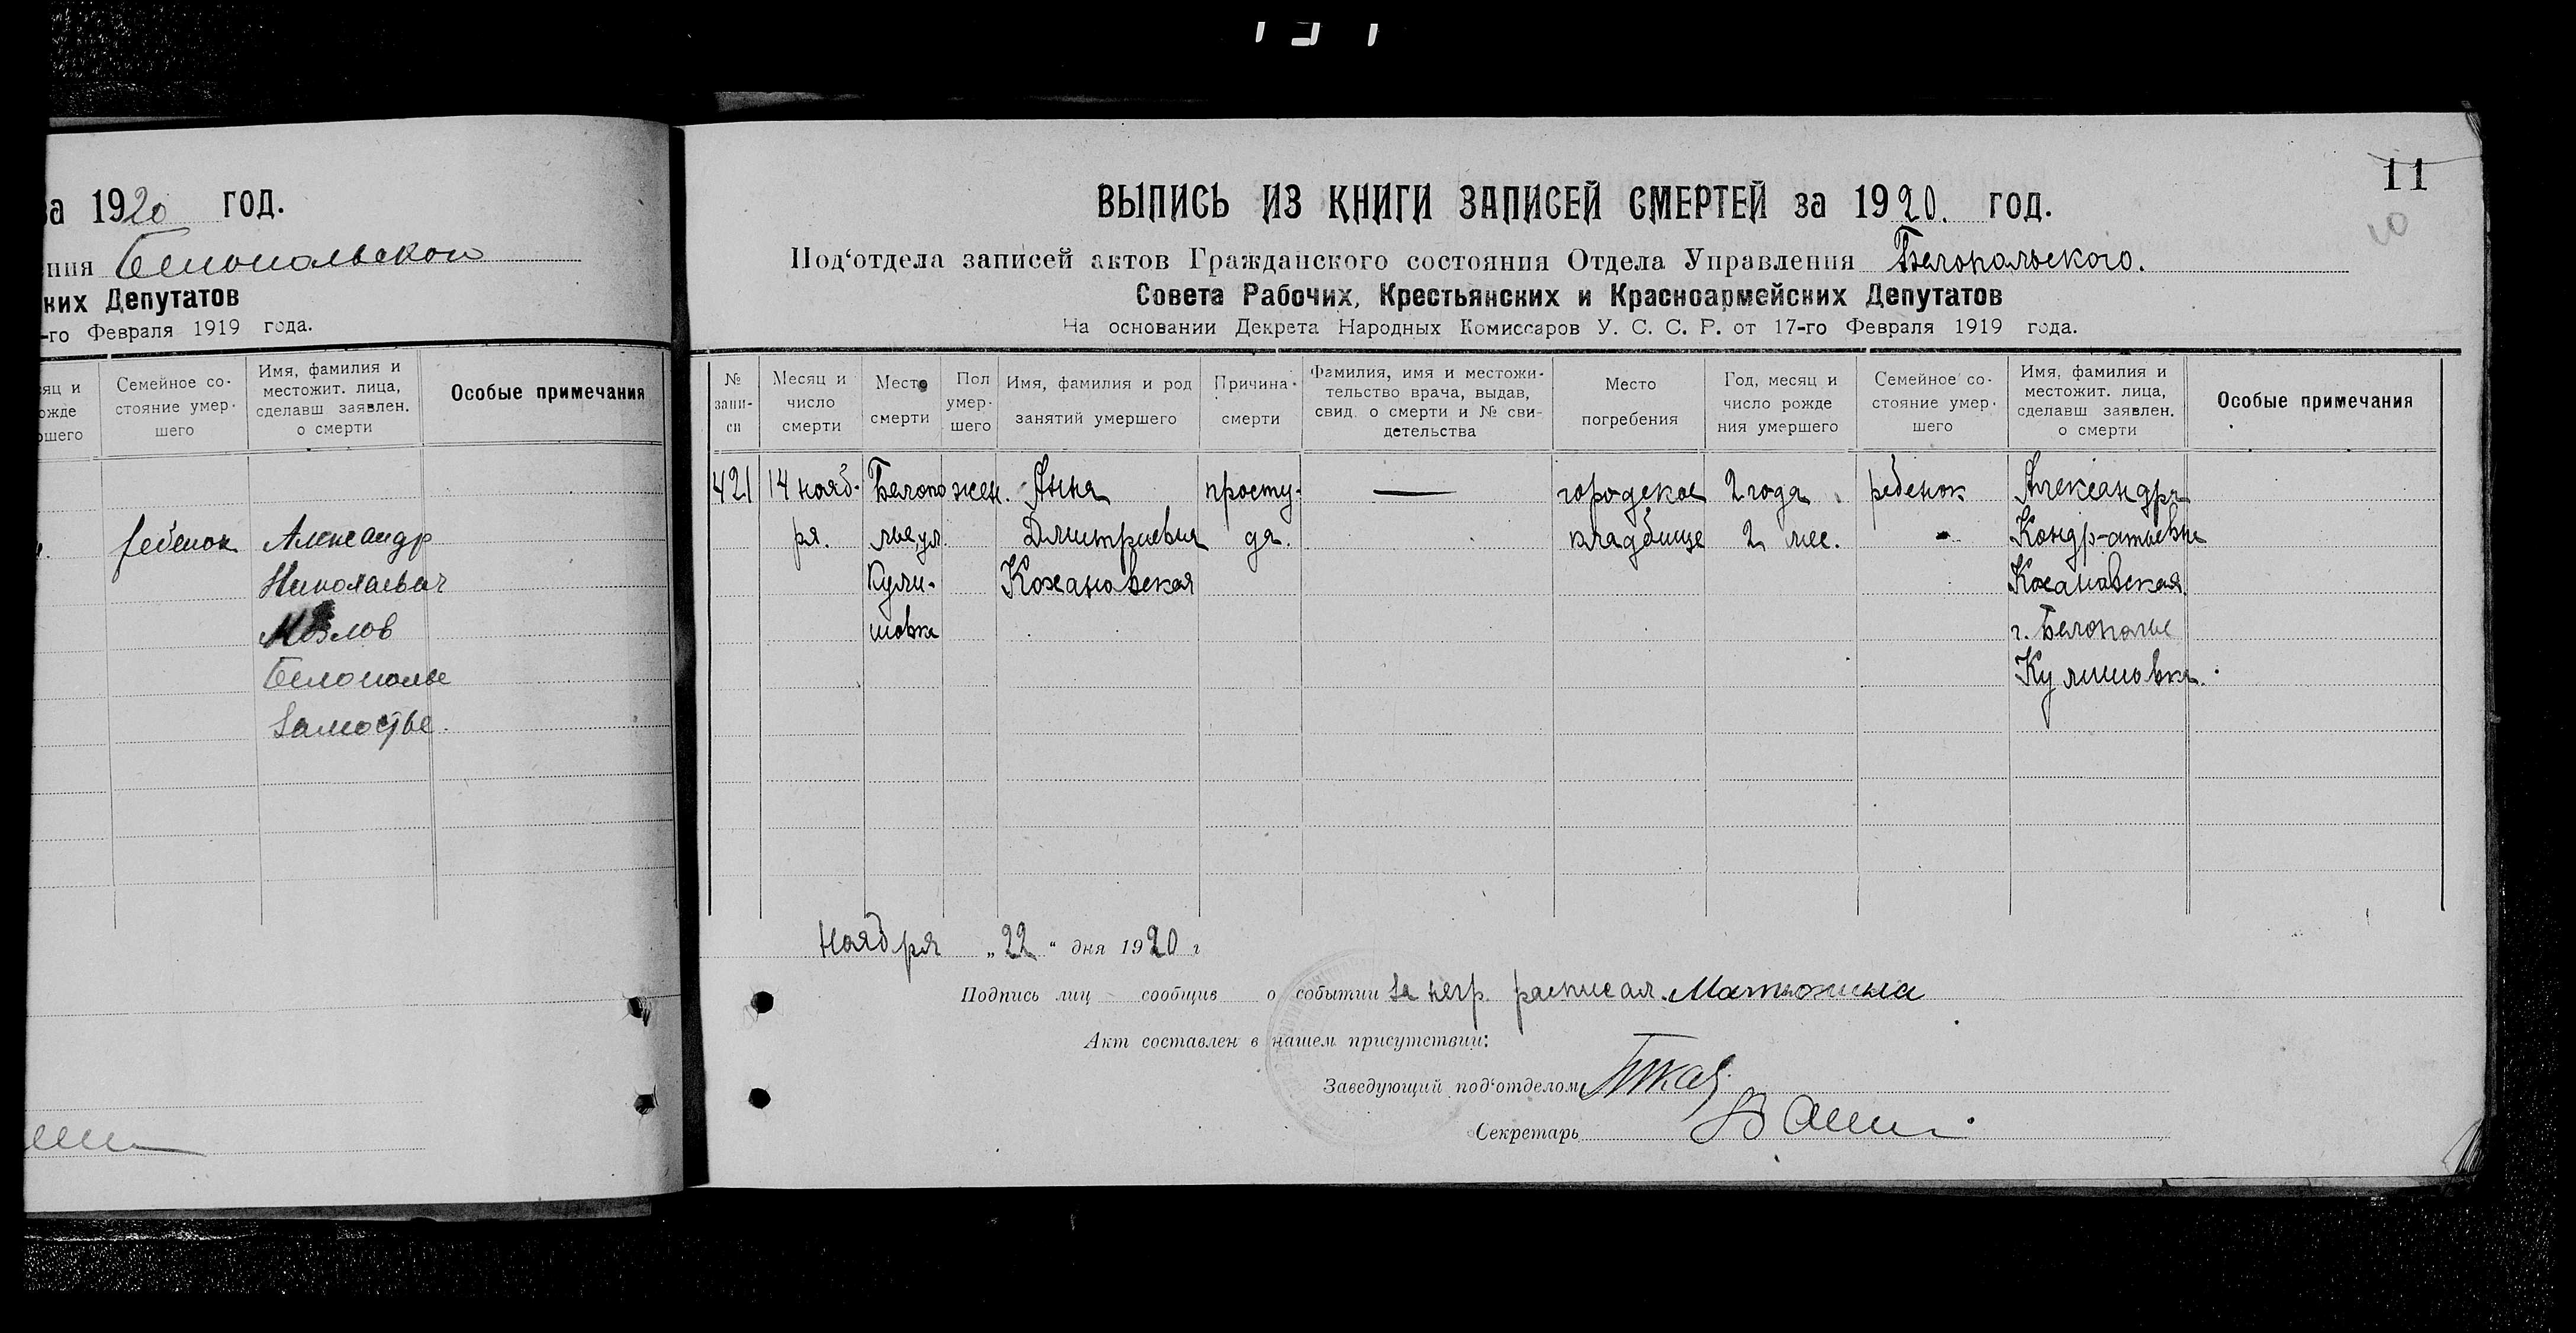 за 1920 год.
ния Белопольского
ких Депутатов
-го Февраля 1919 года.
яц и
ожде
ршего
Семейное со-
стояние умер-
шего
Имя, фамилия и
местожит. лица,
сделавш заявлен.
о смерти
Особые примечания
ребенок
Александр
Николаевич
Белополье
Замостье.
11
10
ВЫПИСЬ ИЗ КНИГИ ЗАПИСЕЙ СМЕРТЕЙ за 1920. год.
Под‘отдела записей актов Гражданского состояния Отдела Управления Белопольского.
Совета Рабочих, Крестьянских и Красноармейских Депутатов
На основании Декрета Народных Комиссаров У. С. С. Р. от 17-го Февраля 1919 года.
№
запи-
си
Месяц и
число
смерти
Место
смерти
Пол
умер-
шего
Имя, фамилия и род
занятий умершего
Причина
смерти
Фамилия, имя и местожи-
тельство врача, выдав,
свид. о смерти и № сви-
детельства
Место
погребения
Год, месяц и
число рожде
ния умершего
Семейное со-
стояние умер-
шего
Имя, фамилия и
местожит. лица,
сделавш заявлен.
о смерти
Особые примечания
421
14 нояб-
ря.
Белопо
лье ул.
Кули-
шовка
жен.
Анна
Дмитриевна
Кохановская
просту-
да.
—
городское
кладбище
2 года
2 мес.
ребенок
Александра
Кондр-атьевна
Кохановская
г. Белополье
Кулишовка.
Ноября „22“ дня 1920 г
Подпись лиц сообщив о событии За негр. расписал. Матюшина
Акт составлен в нашем присутствии:
Заведующий под‘отделом
Секретарь